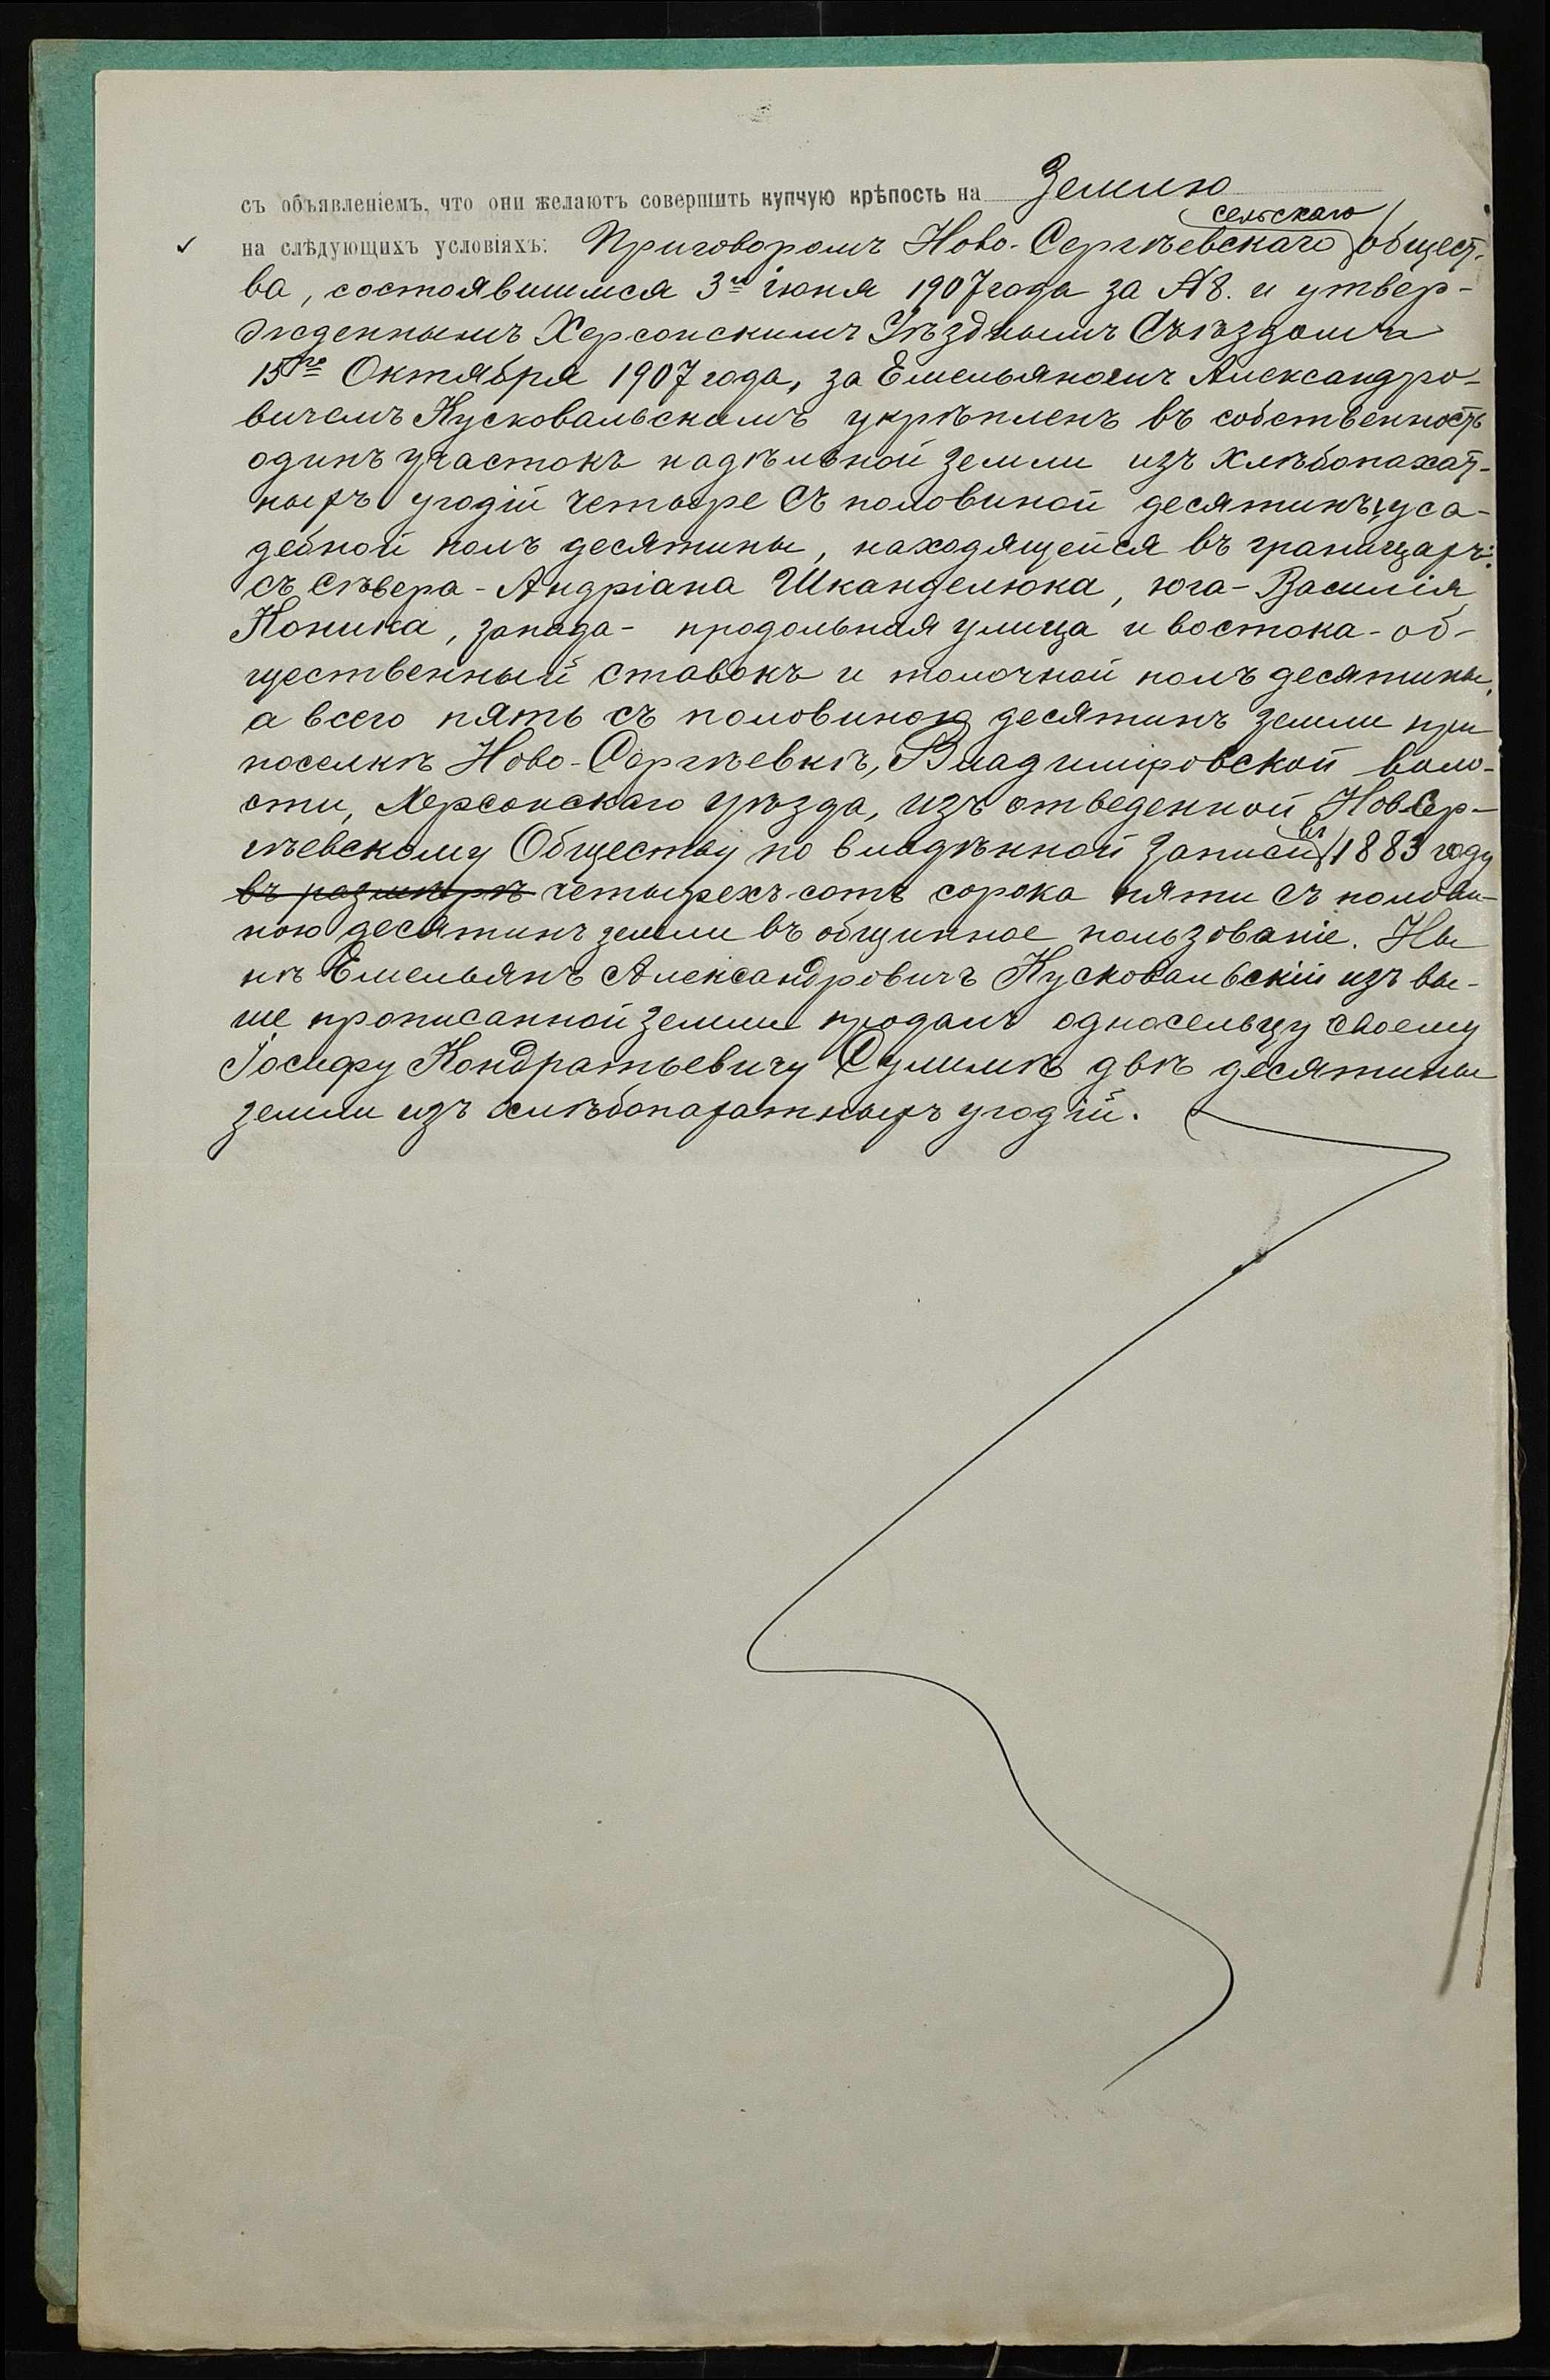 съ объявленіемъ, что они желаютъ совершить купчую крѣпость на Землю
сельскаго
на слѣдующихъ условіяхъ: Приговоромъ Ново-Сергѣевскаго общест-
ва, состоявшимся 3го іюня 1907 года за №8. и утвер-
жденнымъ Херсонскимъ Уѣзднымъ Съѣздомъ
15го Октября 1907 года, за Емельяномъ Александро-
вичемъ Кусковальскимъ укрѣпленъ въ собственность
одинъ участокъ надѣльной земли изъ хлѣбопахат-
ныхъ угодій четыре съ половиной десятинъ, уса-
дебной полъ десятины, находящейся въ границахъ:
съ сѣвера - Андріана Шканделюка, юга - Василія
Коника, запада - продольная улица и востока - об-
щественный ставокъ и толочной полъ десятины,
а всего пять съ половиною десятинъ земли при
поселкѣ Ново-Сергѣевкѣ, Владиміровской воло-
сти, Херсонскаго уѣзда, изъ отведенной Новосер-
гѣевскому Обществу по владѣнной записи въ 1883 году
въ размѣрѣ четырехъ сотъ сорока пяти съ полови-
ною десятинъ земли въ общинное пользованіе. Ны
нѣ Емельянъ Александровичъ Кусковальскій изъ вы-
ше прописанной земли продалъ односельцу своему
Іосифу Кондратьевичу Сулимѣ двѣ десятины
земли изъ хлѣбопахатныхъ угодій.